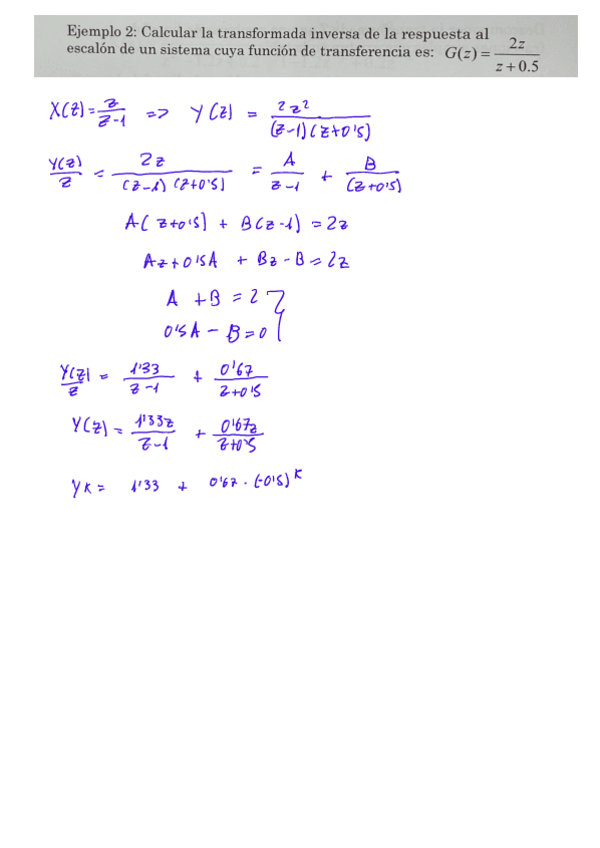 Ejemplo 2: Calcular la transformada inversa de la respuesta al
escalón de un sistema cuya función de transferencia es: G(z) = 2z / (z + 0.5)
X(z) = z / (z-1) => Y(z) = 2z² / ((z-1)(z+0'5))
Y(z) / z = 2z / ((z-1)(z+0'5)) = A / (z-1) + B / (z+0'5)
A(z+0'5) + B(z-1) = 2z
Az + 0'5A + Bz - B = 2z
A + B = 2
0'5A - B = 0
Y(z) / z = 1'33 / (z-1) + 0'67 / (z+0'5)
Y(z) = 1'33z / (z-1) + 0'67z / (z+0'5)
yk = 1'33 + 0'67 · (-0'5)^k